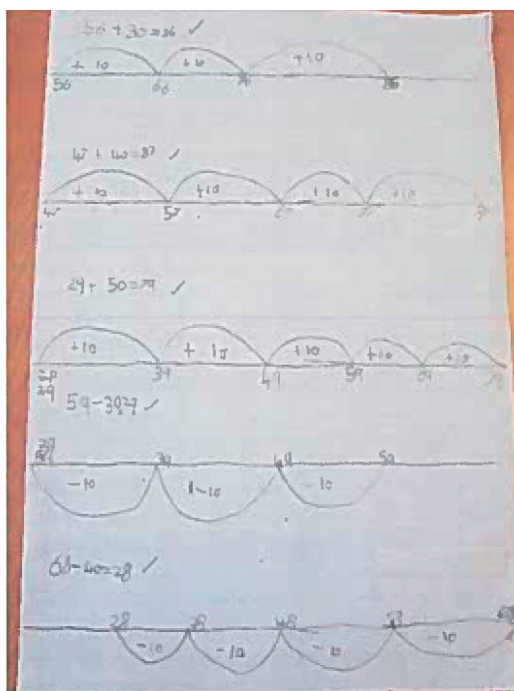 56 + 30 = 86 ✓
+ 10 + 10 +10
56 66 76 86
47 + 40 = 87 ✓
+ 10 +10 +10 +10
47 57 67 77
29 + 50 = 79 ✓
+10 + 10 +10 +10 +10
29 39 49 59 69 79
29
59 - 30 29 ✓
29 39 49 59
-10 -10 -10
68-40=28 ✓
28 38 48 58 68
-10 -10 -10 -10